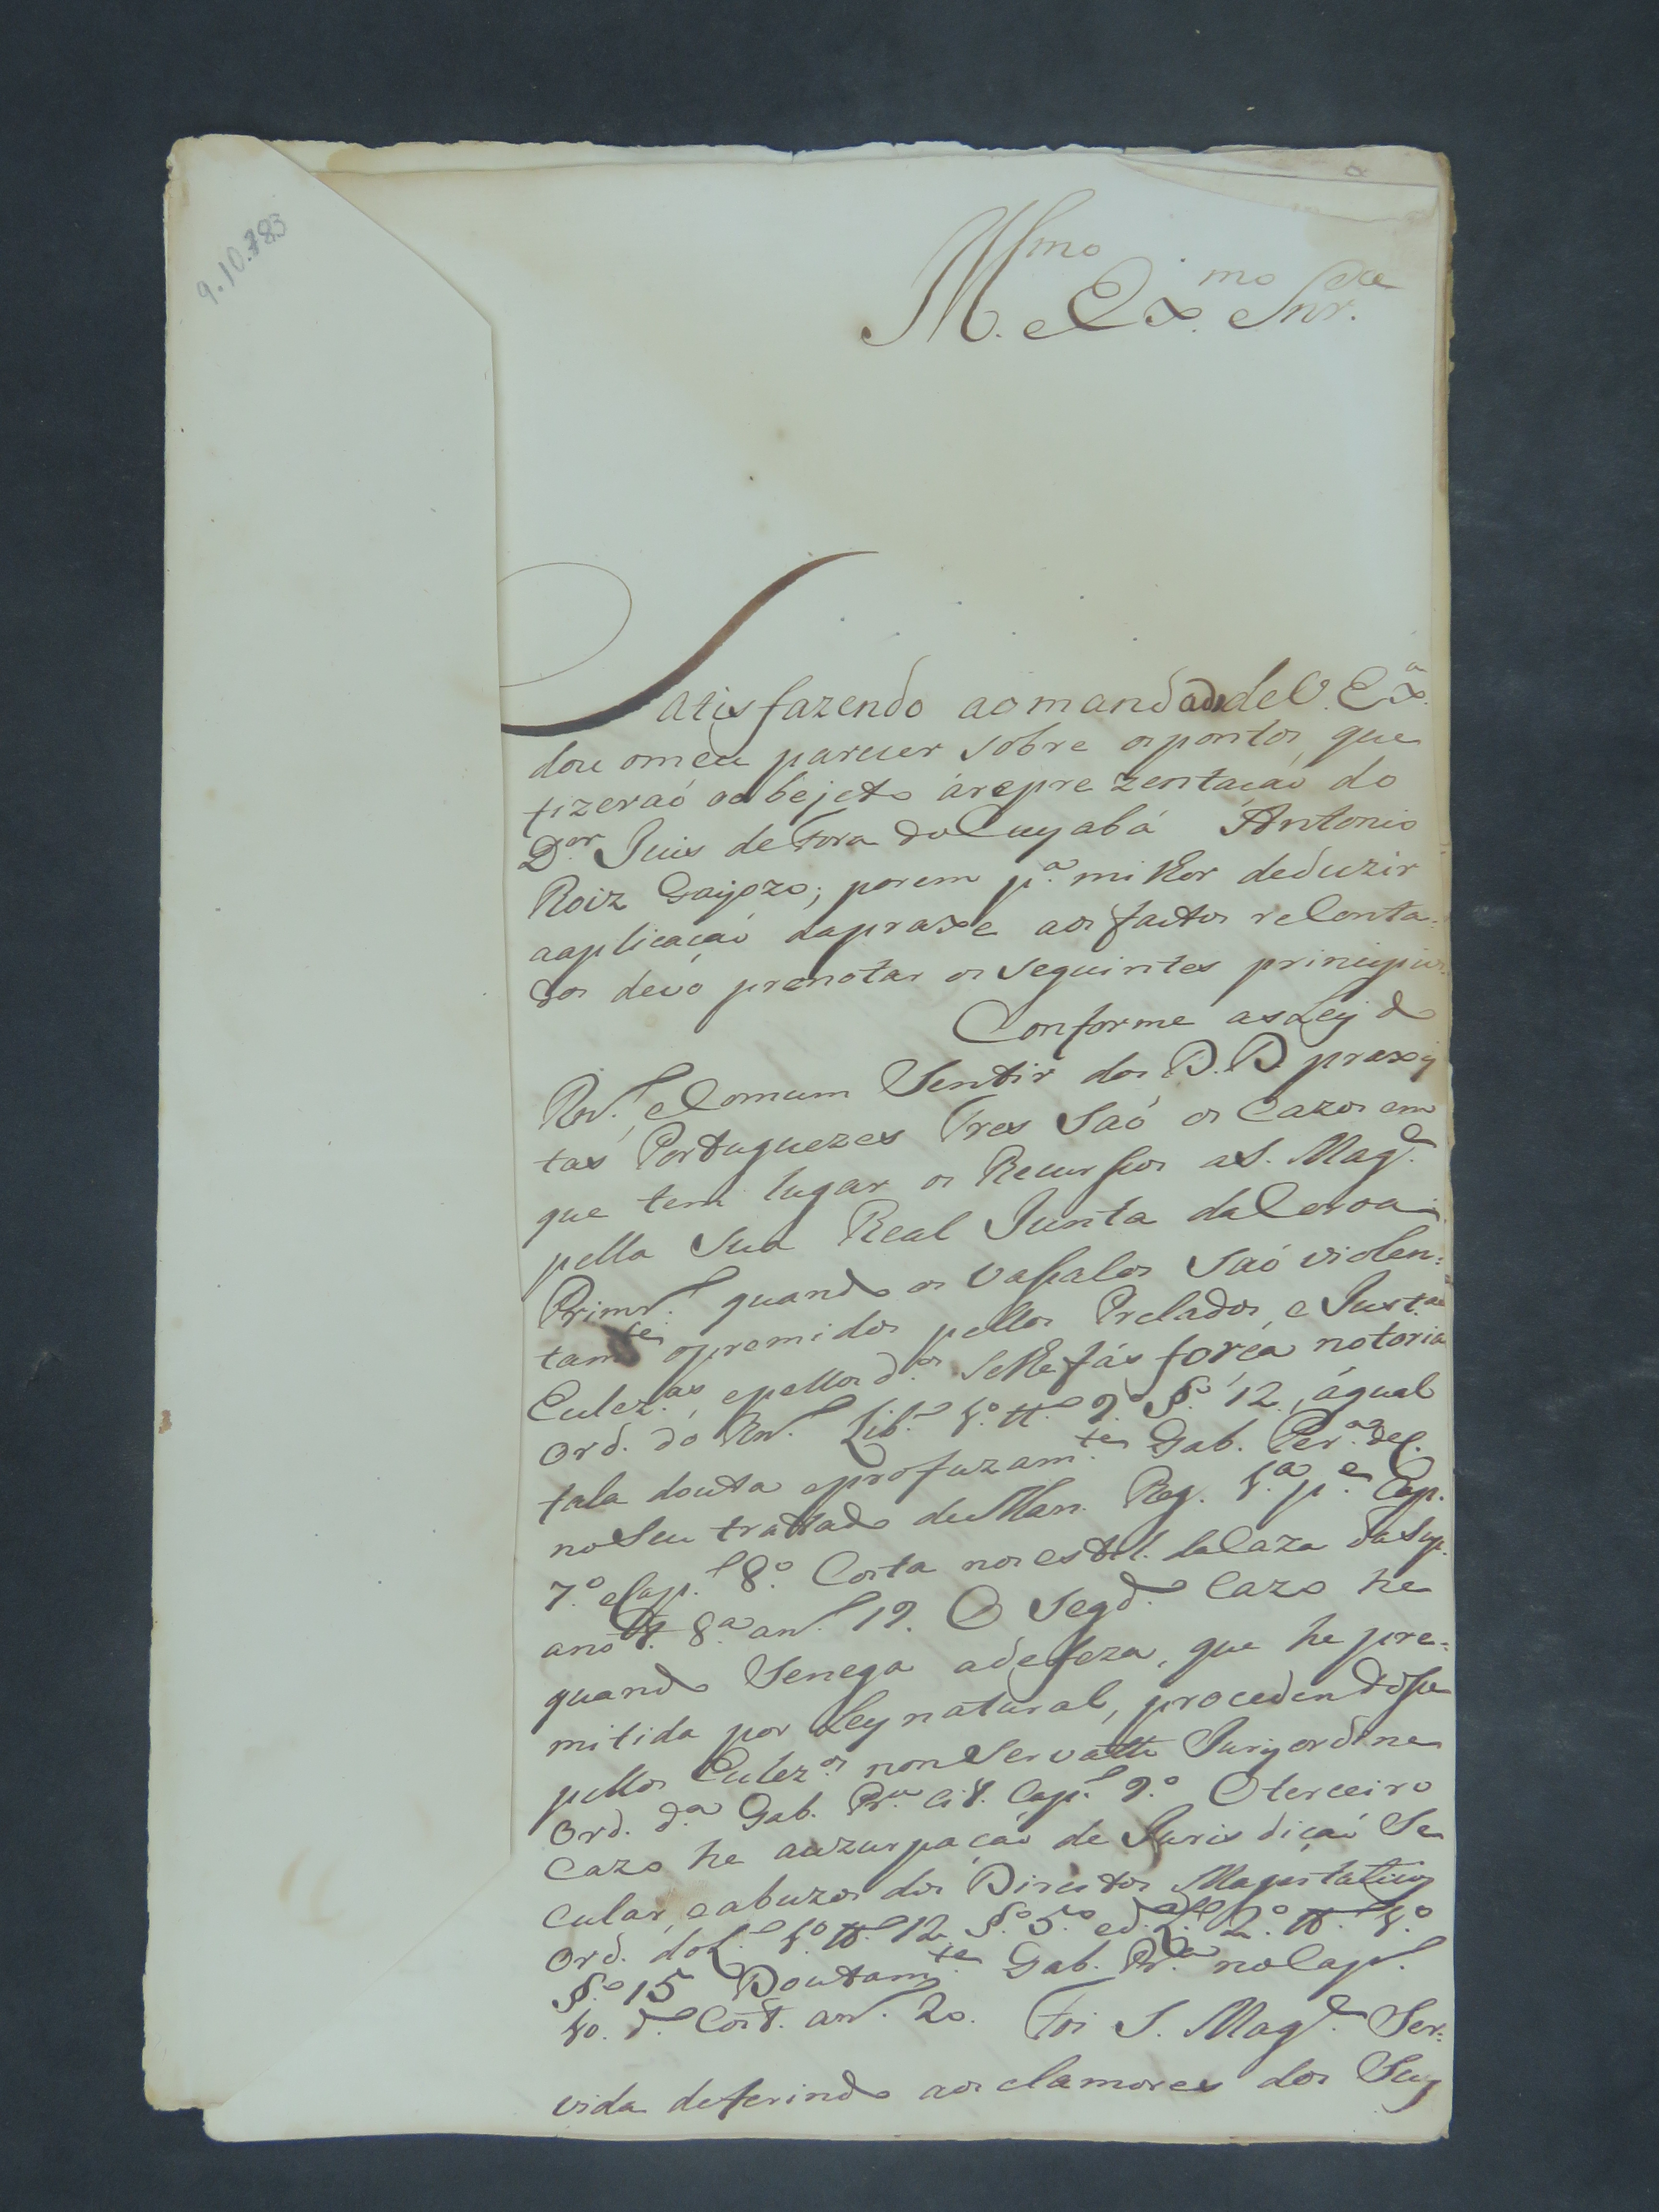 9.10.783
Ill.mo Ex.mo Snr.
Satisfazendo ao mandado de V. Ex.a
dou o meu parecer sobre os pontos que
fizeraó oobejeto árepre zentacaó do
D.or Juis de Fora do Cuyabá Antonio
Roiz Gayozo; porem p.a milhor deduzir
aaplicacaó dapraxe aos factos relenta-
dos devó prenotar os seguintes principios
Conforme as Leys do
Rn.l, eComum Sentir dos D.D. praxis
tas Portuguezes Tres Saó os Cazos em
que tem lugar os Recursos aS. Mag.e
pella Sua Real Junta da Coroa
Primr.l quando os Vasalos Saó violen-
tam.te opremidos pellos Prelados, e Just.as
Eclez.as, epellos d.os Selhe fás forca notoria
Ord. do Rn.l Lib.l 1.º tt.l 9.º §.º 12, áqual
fala douta eprofuzam.te Gab. Per.a de C.
noSeu trattado de Man. Reg. 1.a p.e Cap.
7.º eCap.l 8.º Costa nos estil. da Caza da Sup.
anot. 8.a an.l 19. O Segd.º Cazo he
quando Senega adefeza, que he pre-
mitida por Ley natural, procedendosse
pellos Eclez.os non Servatti Juris ordine
Ord. d.a Gab. Pr.a cit. Cap.l 9.º O terceiro
Cazo he auzurpacaó de Jurisdicaó Se
cular, e abuzos dos Direitos Magistaticos
Ord. do L.l 1.º tt.l 12 §.º 5.º ed. L.º 2.º tt.l 1.º
§.º 15 Doutam.te Gab. Pr.a no Cap.l
10. d.l Cost. an. 20. Foi S. Mag.e Ser-
vida deferindo aos clamores dos Seus